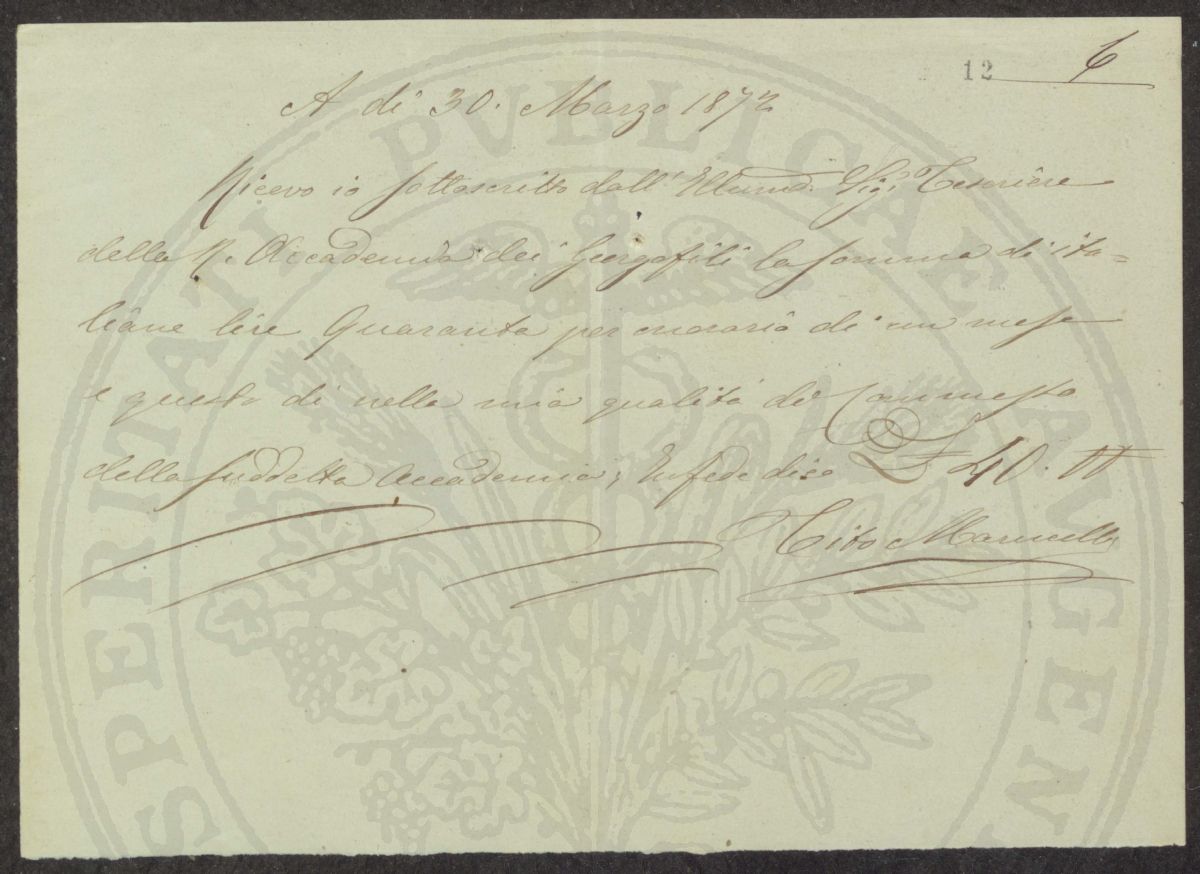 12 6
A dì 30. Marzo 1872
Ricevo io sottoscritto dall' Illumo. Sigr. Tesoriere
della R. Accademia dei Georgofili la somma di ita=
liane lire Quaranta per onorario di un mese
e questo dì nella mia qualità di Commesso
della suddetta Accademia; In fede dico £ 40.
Tito Marucelli
PROSPERITATI PVBLICAE AVGENDAE